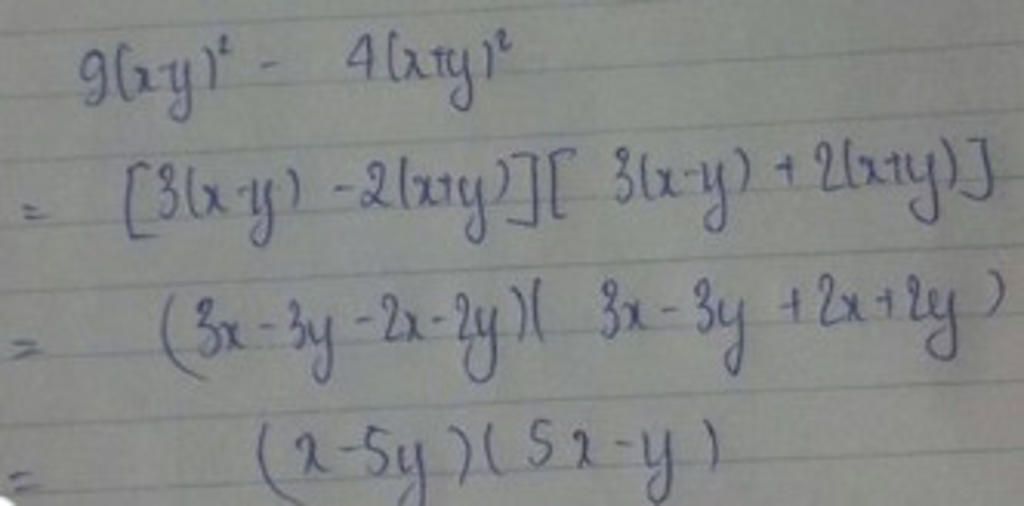 9(x-y)² - 4(x+y)²
= [3(x-y) - 2(x+y)][ 3(x-y) + 2(x+y)]
= (3x - 3y - 2x - 2y)( 3x - 3y + 2x + 2y )
= (x - 5y )( 5x - y )